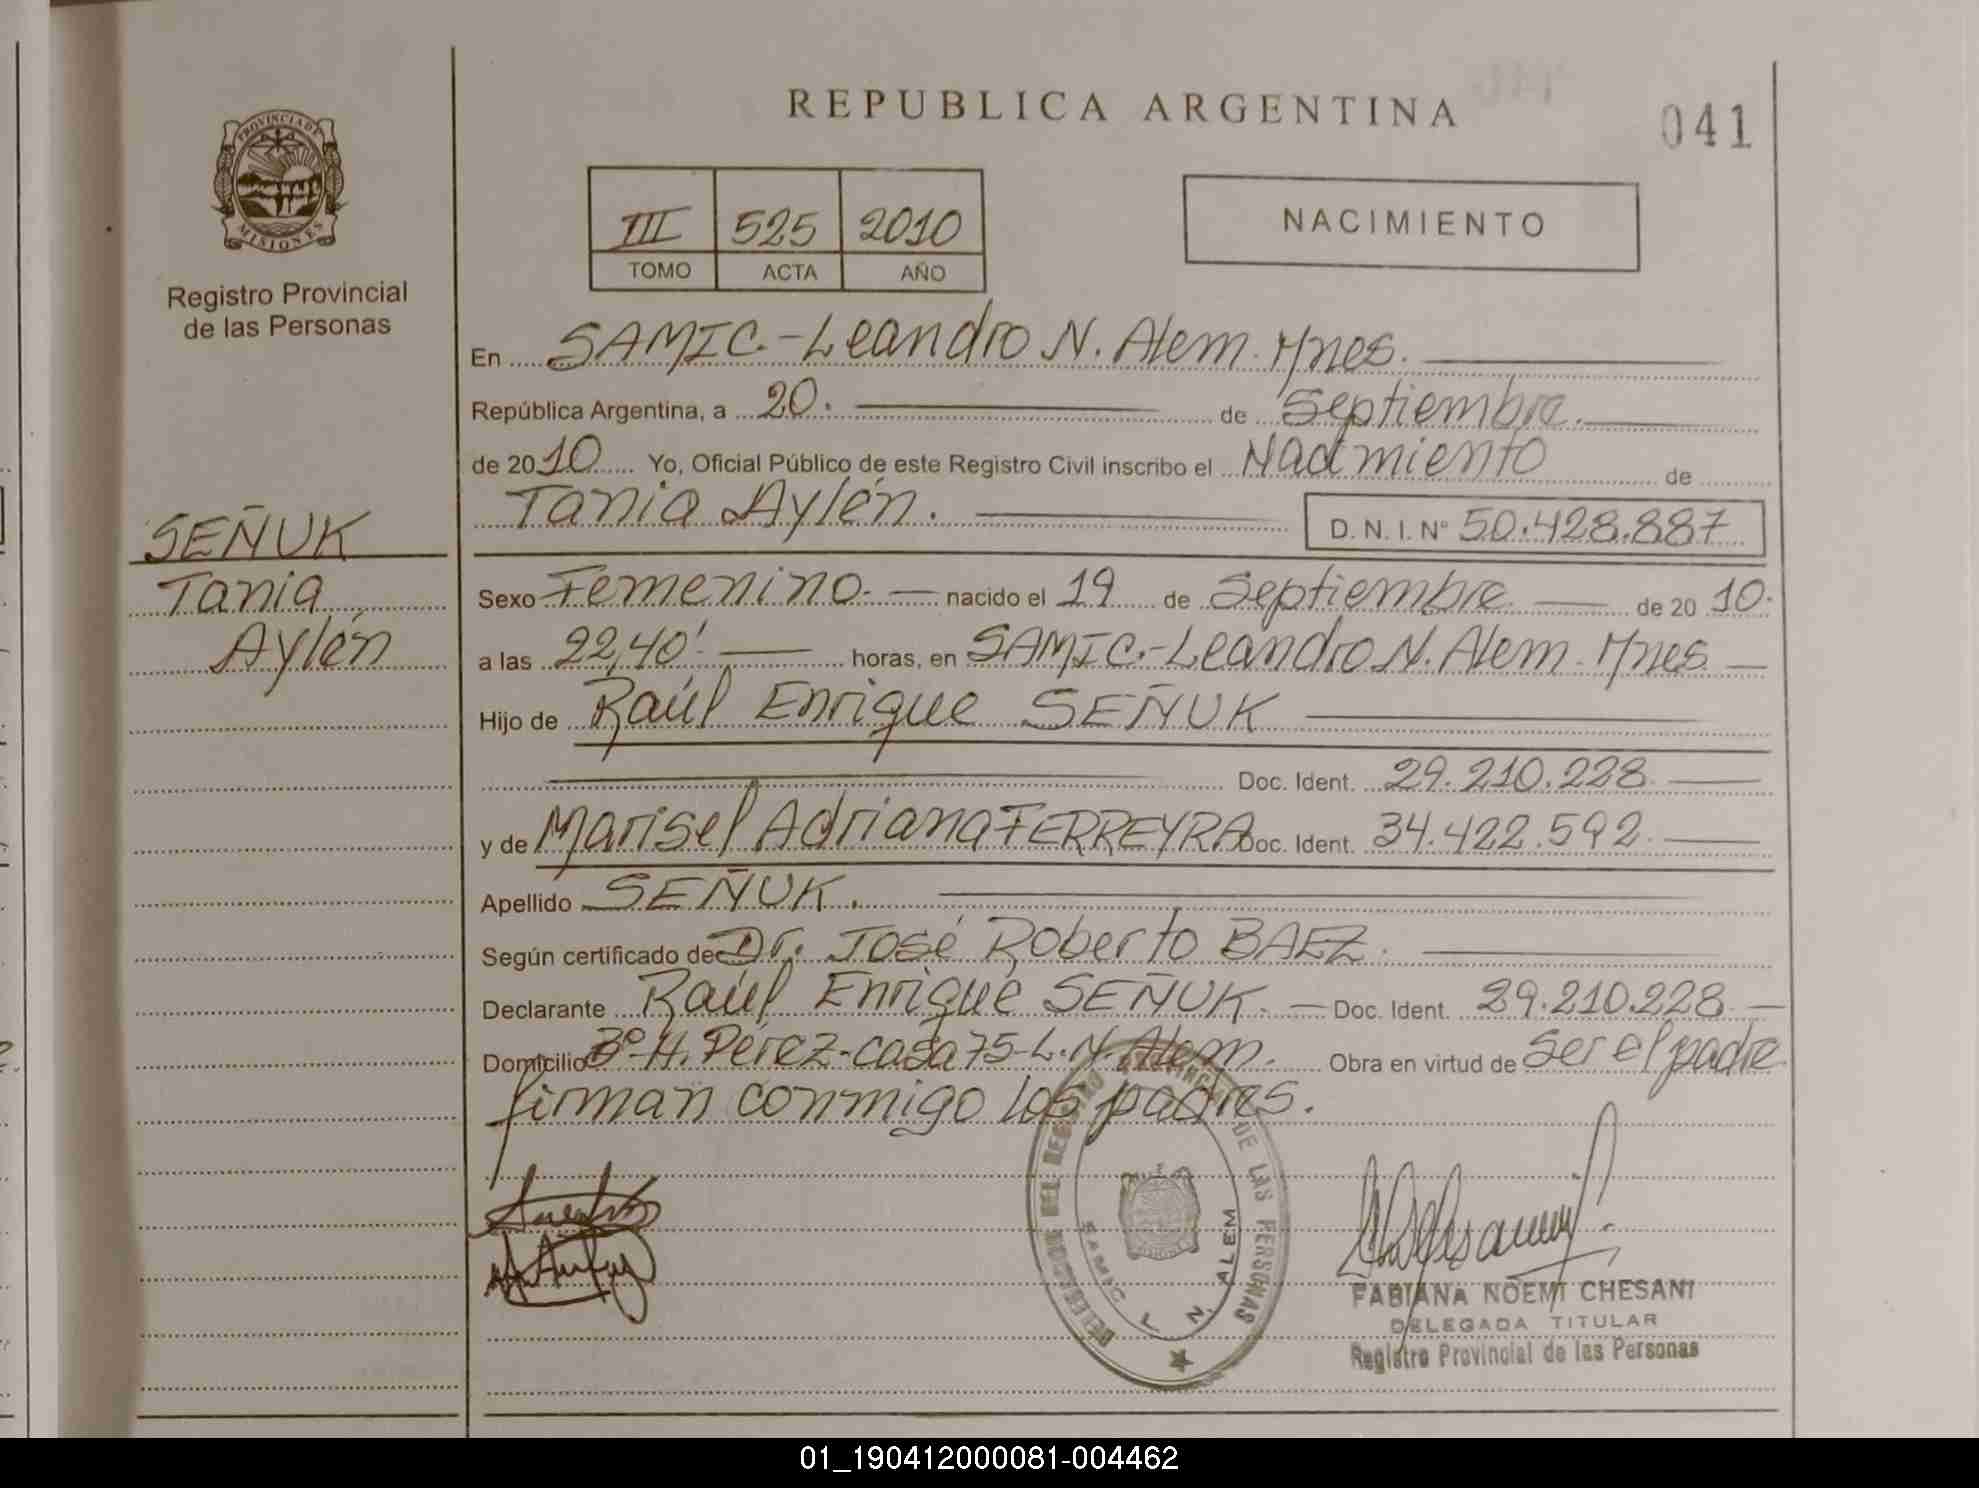 REPUBLICA ARGENTINA
041
PROVINCIA DE
MISIONES
Registro Provincial
de las Personas
III 525 2010
TOMO ACTA AÑO
NACIMIENTO
En SAMIC.-Leandro N. Alem. Mnes.
República Argentina, a 20. de Septiembre.
de 2010 Yo, Oficial Público de este Registro Civil inscribo el Nacimiento de
Tania Aylén.
D. N. I. Nº 50.428.887
SEÑUK
Tania
Aylén
Sexo Femenino. nacido el 19 de Septiembre de 20 10.
a las 22,40' horas, en SAMIC.-Leandro N. Alem. Mnes
Hijo de Raúl Enrique SEÑUK
Doc. Ident. 29.210.228.
y de Marisel Adriana FERREYRA Doc. Ident. 34.422.592.
Apellido SEÑUK.
Según certificado de Dr. José Roberto BAEZ.
Declarante Raúl Enrique SEÑUK. Doc. Ident. 29.210.228
Domicilio Bº-H. Pérez-casa 75-L.N. Alem. Obra en virtud de Ser el padre
firman conmigo los padres.
REGISTRO PROVINCIAL DE LAS PERSONAS
SAMIC L. N. ALEM
FABIANA NOEMI CHESANI
DELEGADA TITULAR
Registro Provincial de las Personas
01_190412000081-004462